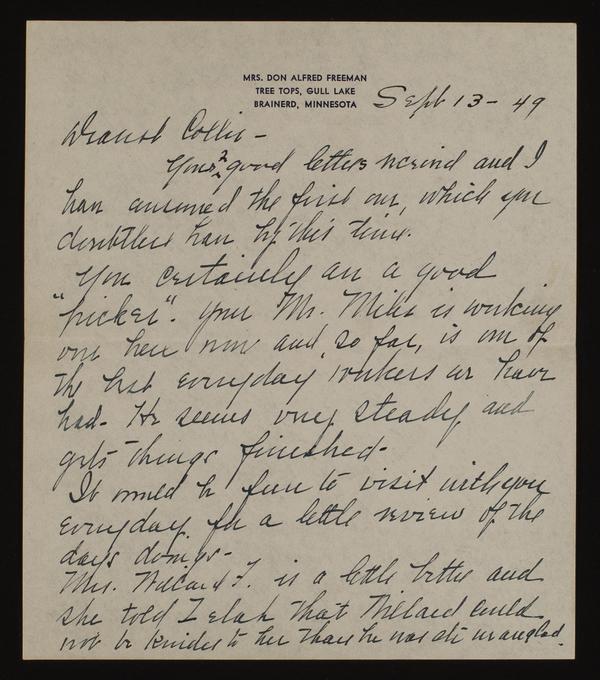 MRS. DON ALFRED FREEMAN
TREE TOPS, GULL LAKE
BRAINERD, MINNESOTA
Sept 13 - 49
Dearest Collie -
Your 2 good letters received and I
have answered the first one, which you
doubtless have by this time.
You certainly are a good
"picker". Your Mr. Miles is working
over here now and, so far, is one of
the best everyday workers we have
had - He seems very steady and
gets things finished -
It would be fun to visit with you
everyday for a little review of the
days doings -
Mrs. Willard F. is a little better and
she told that Willard could
not be kinder to her than he was